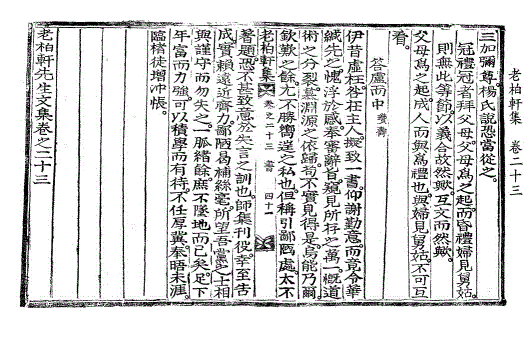 老柏軒集 卷二十三
三加彌尊楊氏說恐當從之
冠禮冠者拜父母父母爲之起而昏禮婦見舅姑
則無此等節以義合故然歟互文而然歟
父母爲之起成人而與爲禮也與婦見舅姑不可互
看
答盧而中 燮壽
伊昔虛枉咎在主人擬致一書仰謝勤意而竟令華
緘先之愧浮於感奉審辭旨窺見所存之萬一槪道
術之分裂慕淵源之依歸苟不實見得是烏能乃爾
欽歎之餘尤不勝嚮
之私也但稱引鄙陋處太不
老柏軒集 卷之二十三 書 四十一
著題恐不甚致意於失言之訓也師集刊役幸至告
成實賴遠近齊力鄙陋曷補絲毫所望吾黨之士相
與謹守而勿失之一脈緖餘庶不墜地而已矣足下
年富而力强可以積學而有待不任厚冀奉晤未涯
臨楮徒增沖悵
老柏軒先生文集卷之二十三